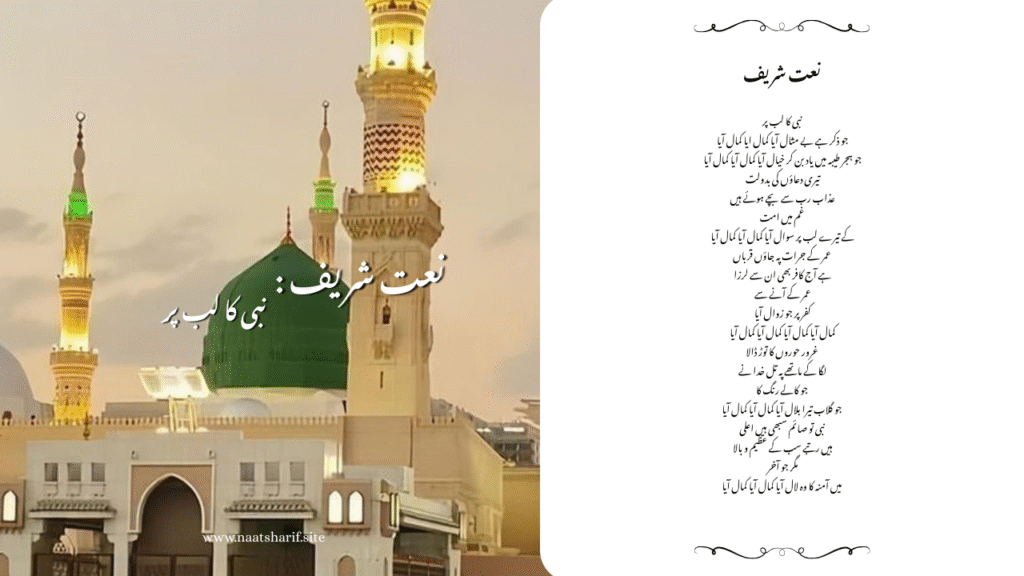 نعت شریف :
نبی کا لب پر
www.naatsharif.site
نعت شریف
نبی کا لب پر
جو ذکر ہے بے مثال آیا کمال ایا کمال آیا
جو ہجر طیبہ میں یاد بن کر خیال آیا کمال آیا کمال آیا
تیری دعاؤں کی بدولت
عذاب رب سے بچے ہوئے ہیں
غم میں امت
کے تیرے لب پر سوال آیا کمال آیا کمال آیا
عمر کے جرات پہ جاؤں قرباں
ہے آج کافر بھی ان سے لرزا
عمر کے آنے سے
کفر پر جو زوال آیا
کمال آیا کمال آیا کمال آیا کمال آیا
غرور حوروں کا توڑ ڈالا
لگا کے ماتھے پہ تل خدا نے
جو کالے رنگ کا
جو گلاب تیرا بلال آیا کمال آیا کمال آیا
نبی تو صائم سبھی ہیں اعلی
ہیں رتبے سب کے عظیم و بالا
مگر جو آخر
میں آمنہ کا وہ لال آیا کمال آیا کمال آیا